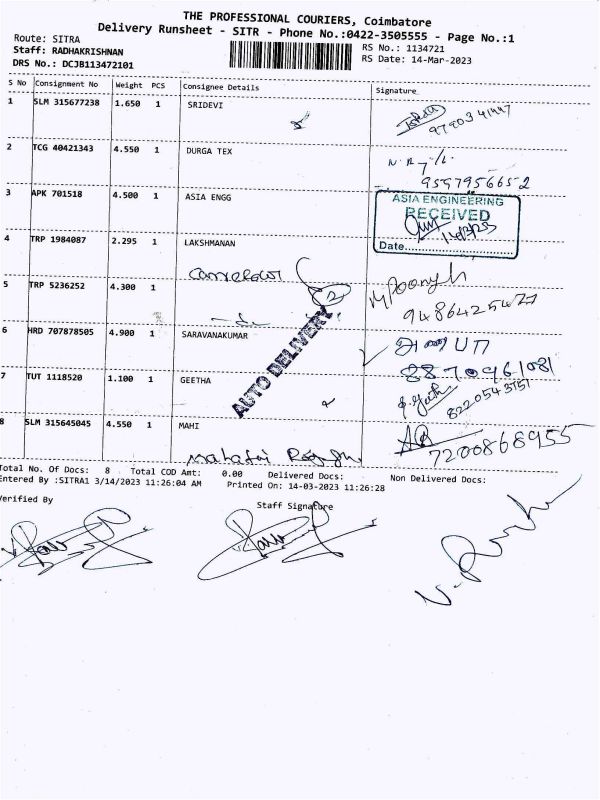 THE PROFESSIONAL COURIERS, Coimbatore
Delivery Runsheet - SITR - Phone No.:0422-3505555 - Page No.:1
Route: SITRA
RS No.: 1134721
Staff: RADHAKRISHNAN
RS Date: 14-Mar-2023
DRS No.: DCJB113472101
S No Consignment No Weight PCS Consignee Details Signature
1 SLM 315677238 1.650 1 SRIDEVI
2 TCG 40421343 4.550 1 DURGA TEX
9597956652
3 APK 701518 4.500 1 ASIA ENGG
ASIA ENGINEERING
RECEIVED
14/3/23
Date
4 TRP 1984087 2.295 1 LAKSHMANAN
5 TRP 5236252 4.300 1
2
9486425477
AUTO DELIVERY
6 HRD 707878505 4.900 1 SARAVANAKUMAR
8870961081
7 TUT 1118520 1.100 1 GEETHA
8220543151
8 SLM 315645045 4.550 1 MAHI
7200868955
Total No. Of Docs: 8 Total COD Amt: 0.00 Delivered Docs: Non Delivered Docs:
Entered By :SITRA1 3/14/2023 11:26:04 AM Printed On: 14-03-2023 11:26:28
Verified By
Staff Signature